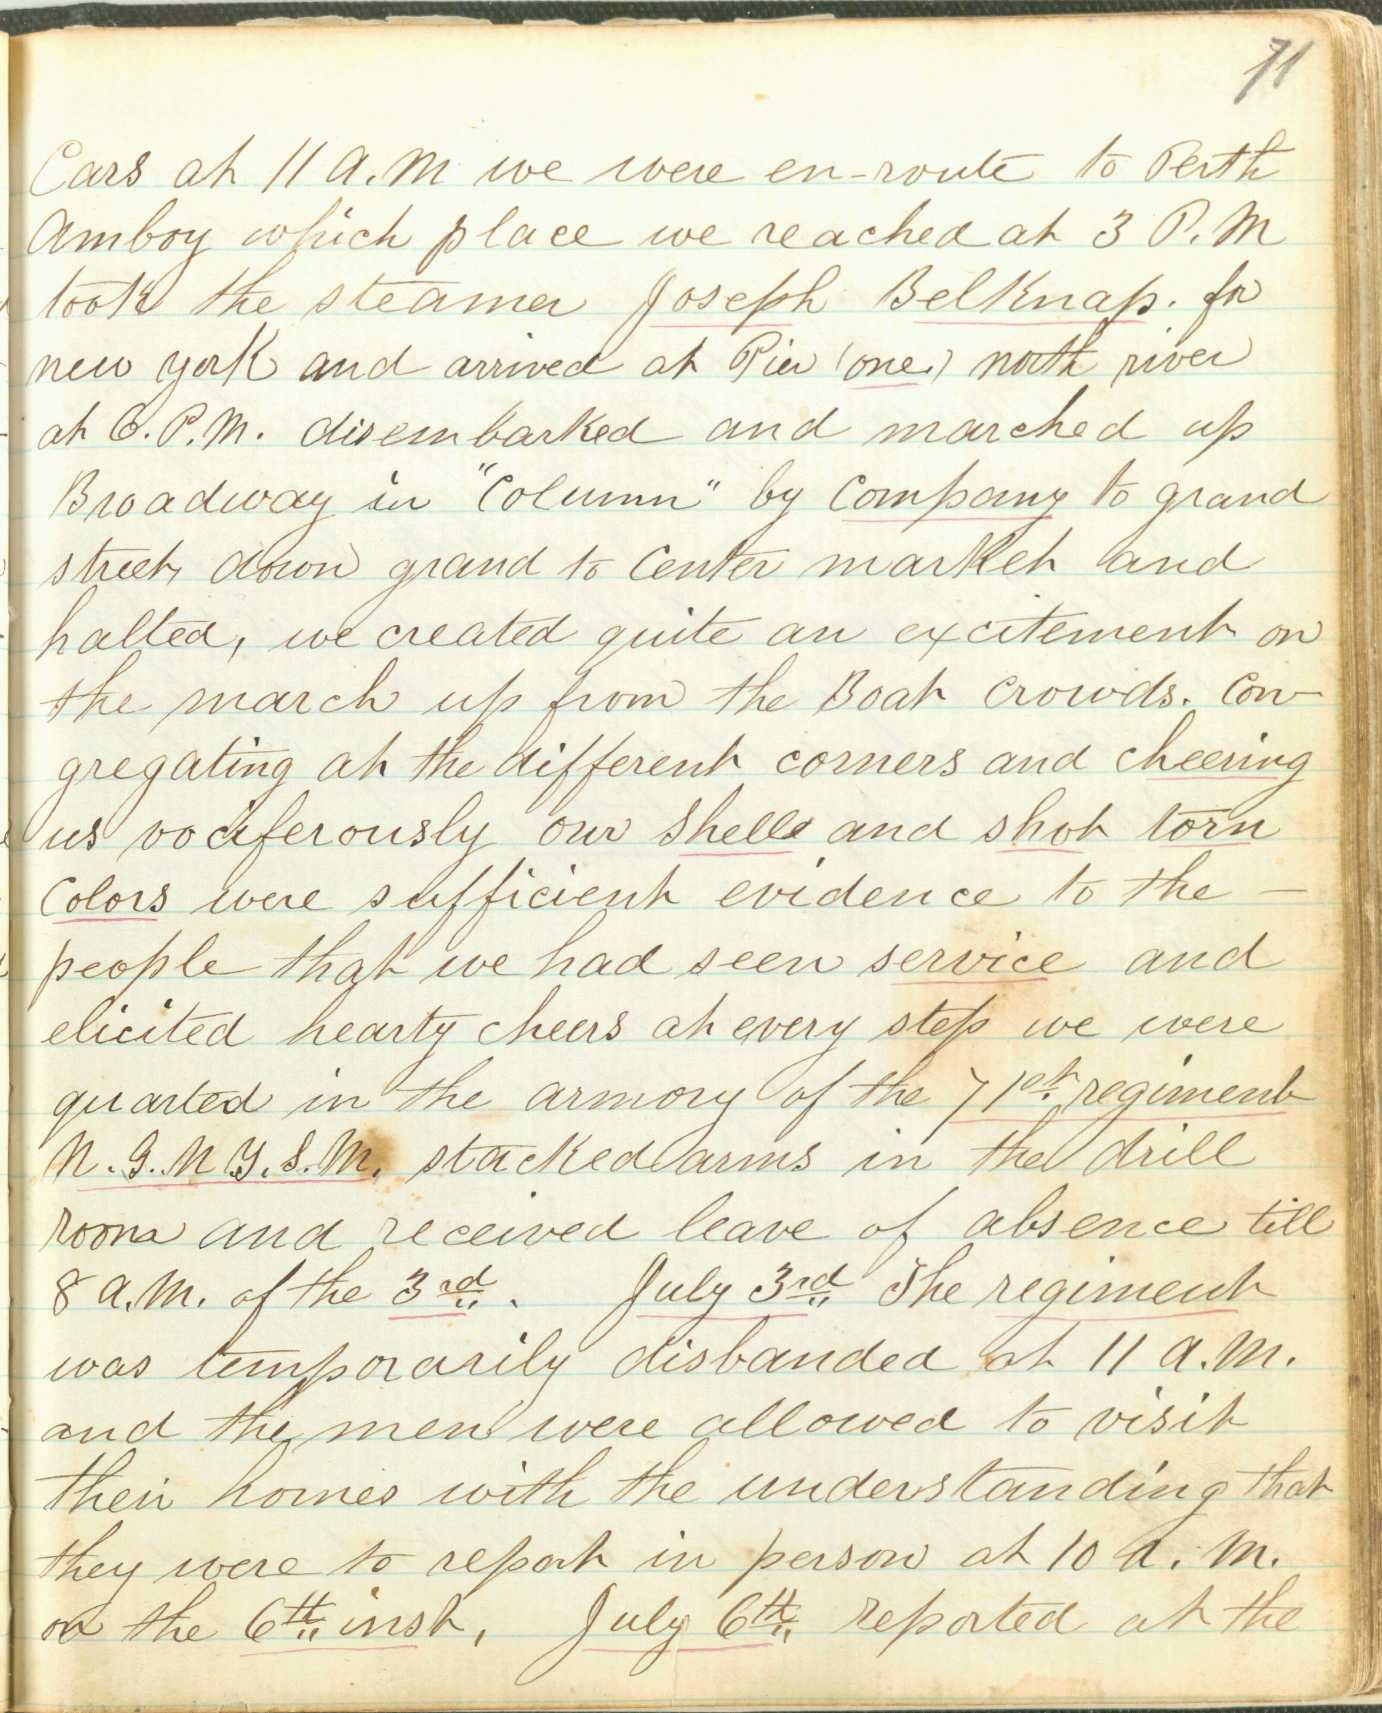 71
Cars at 11 A.M we were en-route to Perth
Amboy which place we reached at 3 P.M
took the steamer Joseph Belknap. for
new york and arrived at Pier (one.) north river
at 6. P.M. disembarked and marched up
Broadway in "Column" by Company to grand
street, down grand to Center market and
halted, we created quite an excitement on
the march up from the Boat Crowds. Con-
gregating at the different corners and cheering
us vociferously our Shell and shot torn
Colors were sufficient evidence to the —
people that we had seen service and
elicited hearty cheers at every step we were
quarted in the armory of the 71st regiment
N.G.N.Y.S.M. stacked arms in the drill
room and received leave of absence till
8 A.M. of the 3rd. July 3rd The regiment
was temporarily disbanded at 11 A.M.
and the men were allowed to visit
their homes with the understanding that
they were to report in person at 10 A.M.
on the 6th inst, July 6th reported at the